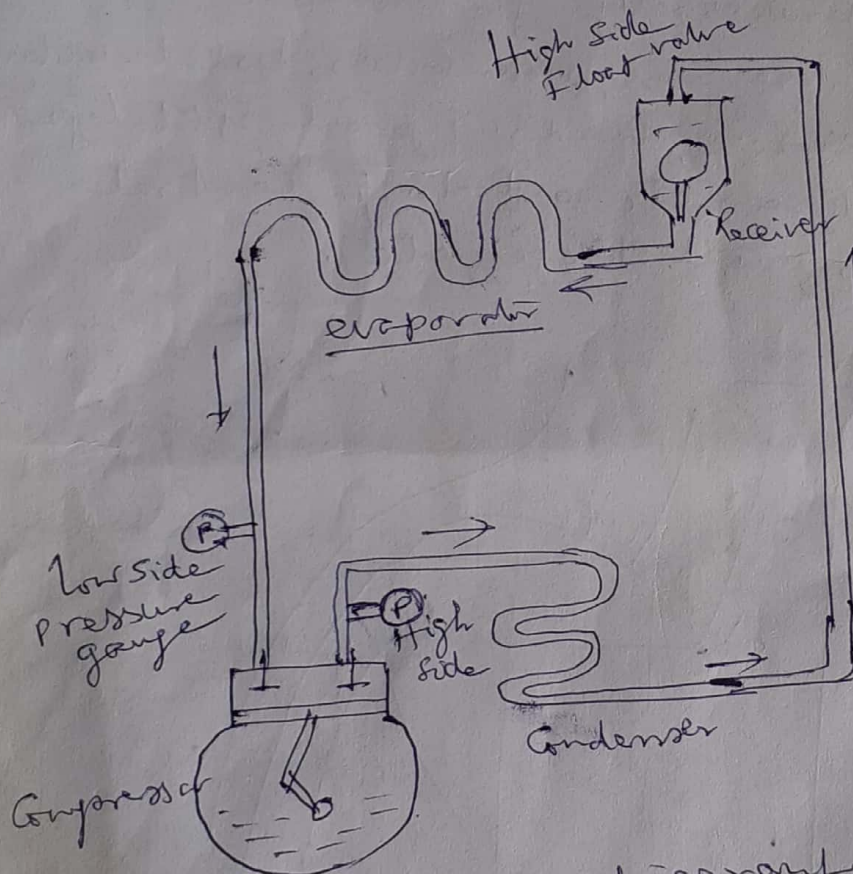 High side
Float valve
Receiver
evaporator
P
Low side
pressure
gauge
P
High
side
Condenser
Compressor